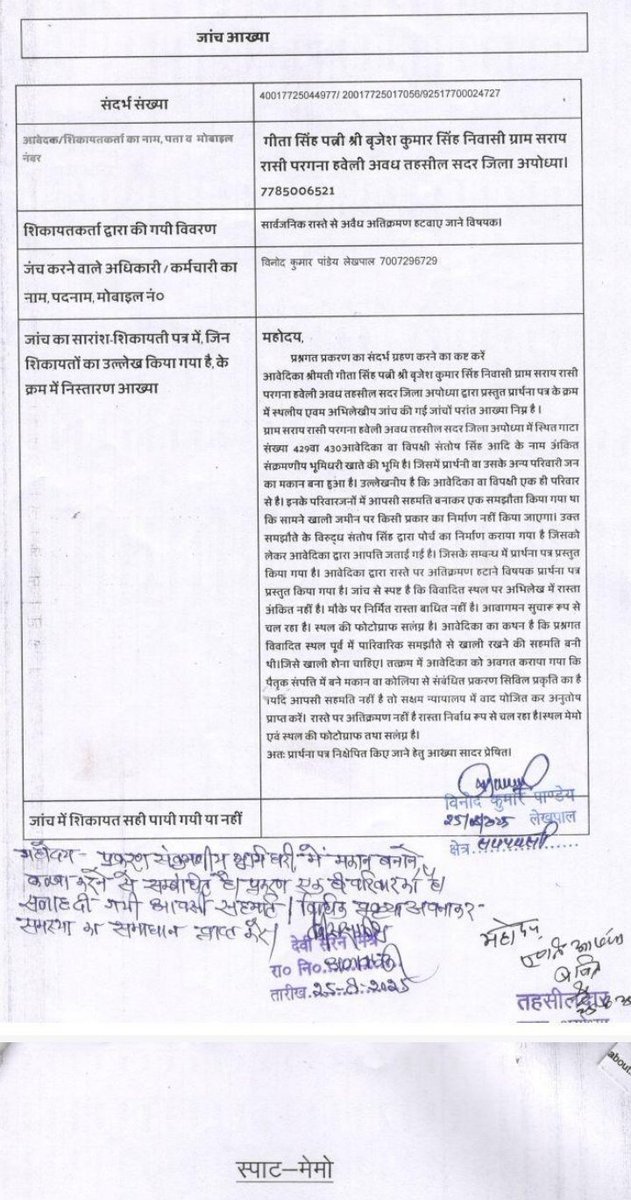 जांच आख्या
संदर्भ संख्या
40017725044977/ 20017725017056/92517700024727
आवेदक/शिकायतकर्ता का नाम, पता व मोबाइल
नंबर
गीता सिंह पत्नी श्री बृजेश कुमार सिंह निवासी ग्राम सराय
रासी परगना हवेली अवध तहसील सदर जिला अयोध्या।
7785006521
शिकायतकर्ता द्वारा की गयी विवरण
सार्वजनिक रास्ते से अवैध अतिक्रमण हटवाए जाने विषयक।
जंच करने वाले अधिकारी / कर्मचारी का
नाम, पदनाम, मोबाइल नं०
विनोद कुमार पांडेय लेखपाल 7007296729
जांच का सारांश-शिकायती पत्र में, जिन
शिकायतों का उल्लेख किया गया है, के
क्रम में निस्तारण आख्या
महोदय,
प्रश्नगत प्रकरण का संदर्भ ग्रहण करने का कष्ट करें
आवेदिका श्रीमती गीता सिंह पत्नी श्री बृजेश कुमार सिंह निवासी ग्राम सराय रासी
परगना हवेली अवध तहसील सदर जिला अयोध्या द्वारा प्रस्तुत प्रार्थना पत्र के क्रम
में स्थलीय एवम अभिलेखीय जांच की गई जांचों परांत आख्या निम्न है ।
ग्राम सराय रासी परगना हवेली अवध तहसील सदर जिला अयोध्या में स्थित गाटा
संख्या 429वा 430आवेदिका वा विपक्षी संतोष सिंह आदि के नाम अंकित
संक्रमणीय भूमिधरी खाते की भूमि है। जिसमें प्रार्थनी वा उसके अन्य परिवारी जन
का मकान बना हुआ है। उल्लेखनीय है कि आवेदिका वा विपक्षी एक ही परिवार
से है। इनके परिवारजनों में आपसी सहमति बनाकर एक समझौता किया गया था
कि सामने खाली जमीन पर किसी प्रकार का निर्माण नहीं किया जाएगा। उक्त
समझौते के विरुद्ध संतोष सिंह द्वारा पोर्च का निर्माण कराया गया है जिसको
लेकर आवेदिका द्वारा आपत्ति जताई गई है। जिसके सम्बन्ध में प्रार्थना पत्र प्रस्तुत
किया गया है। आवेदिका द्वारा रास्ते पर अतिक्रमण हटाने विषयक प्रार्थना पत्र
प्रस्तुत किया गया है। जांच से स्पष्ट है कि विवादित स्थल पर अभिलेख में रास्ता
अंकित नहीं है। मौके पर निर्मित रास्ता बाधित नहीं है। आवागमन सुचारू रूप से
चल रहा है। स्थल की फोटोग्राफ सलंग्न है। आवेदिका का कथन है कि प्रश्नगत
विवादित स्थल पूर्व में पारिवारिक समझौते से खाली रखने की सहमति बनी
थी।जिसे खाली होना चाहिए। तत्क्रम में आवेदिका को अवगत कराया गया कि
पैतृक संपति में बने मकान वा कोलिया से संबंधित प्रकरण सिविल प्रकृति का है
।यदि आपसी सहमति नहीं है तो सक्षम न्यायालय में वाद योजित कर अनुतोष
प्राप्त करें। रास्ते पर अतिक्रमण नहीं है रास्ता निर्वाध रूप से चल रहा है।स्थल मेमो
एवं स्थल की फोटोग्राफ तथा सलंग्न है।
अतः प्रार्थना पत्र निक्षेपित किए जाने हेतु आख्या सादर प्रेषित।
जांच में शिकायत सही पायी गयी या नहीं
विनोद कुमार पाण्डेय
लेखपाल
क्षेत्र
महोदय - प्रकरण संक्रमणीय भूमिधरी में मकान बनाने
कब्जा करने से सम्बन्धित है। प्रकरण एक ही परिवार का है।
आपसी सहमति /
समस्या का समाधान प्राप्त करें।
देवी सरन मिश्र
रा० नि०
तारीख 25-8-2025
महोदय,
तहसीलदार
about:
स्पाट–मेमो